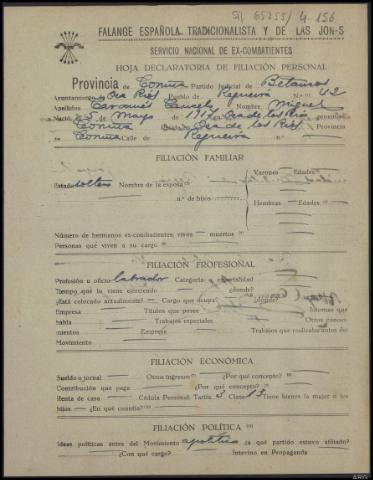 65255/ 4-156
FALANGE ESPAÑOLA TRADICIONALISTA Y DE LAS JON-S
SERVICIO NACIONAL DE EX-COMBATIENTES
HOJA DECLARATORIA DE FILIACIÓN PERSONAL
Provincia de Coruña Partido Judicial de Betanzos
Ayuntamiento de Oza Rios Pueblo de Regueira N.º 42
Apellidos Nombre, Miguel
Nació 5 Mayo 1917 Oza de los Rios
Coruña Oza de los Rios Provincia
de Coruña Calle de Regueira
FILIACIÓN FAMILIAR
Varones Edades
Estado soltero Nombre de la esposa
n.º de hijos
Hembras Edades
Número de hermanos ex-combatientes: viven muertos
Personas que viven a su cargo
FILIACIÓN PROFESIONAL
Profesión u oficio labrador Categoría o especialidad
Tiempo que la viene ejerciendo ¿dónde?
¿Está colocado actualmente? Cargo que ocupa
Empresa Títulos que posee Idiomas que
habla Trabajos especiales Otros conoci-
mientos Empresa Trabajos que realizaba antes del
Movimiento
FILIACIÓN ECONÓMICA
Sueldo o jornal Otros ingresos ¿Por qué concepto?
Contribución que paga ¿Por qué concepto?
Renta de casa Cédula Personal: Tarifa 3 Clase 13 Tiene bienes la mujer o los
hijos ¿En qué cuantía?
FILIACIÓN POLÍTICA
Ideas políticas antes del Movimiento apolítico ¿a qué partido estuvo afiliado?
¿Con qué cargo? Intervino en Propaganda